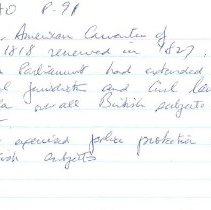 P-91
American Convention of
1818 renewed in 1827.
Parliament had extended
jurisdiction and Civil
over all British subjects
exercised police protection
subjects